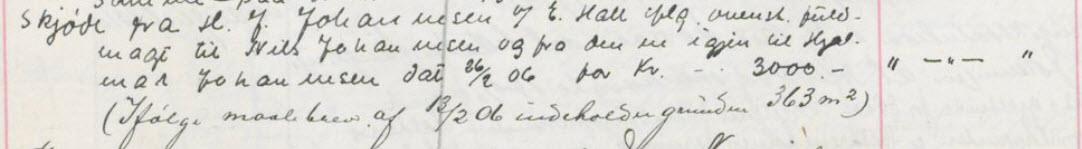 Skjøde fra H. J. Johannesen v/ E. Hall iflg. ovenst. fuld-
magt til Nils Johannesen og fra denne igjen til Hjal-
mar Johannesen dat 26/2 06 for Kr. - - 3000.- " -"- "
(Ifølge maalebrev af 13/2 06 indeholder grunden 363 m²)